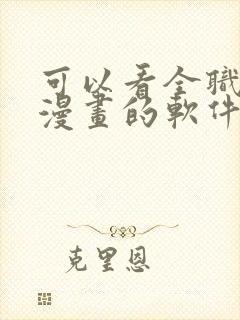 可以看全職
漫畫的軟件
克里恩